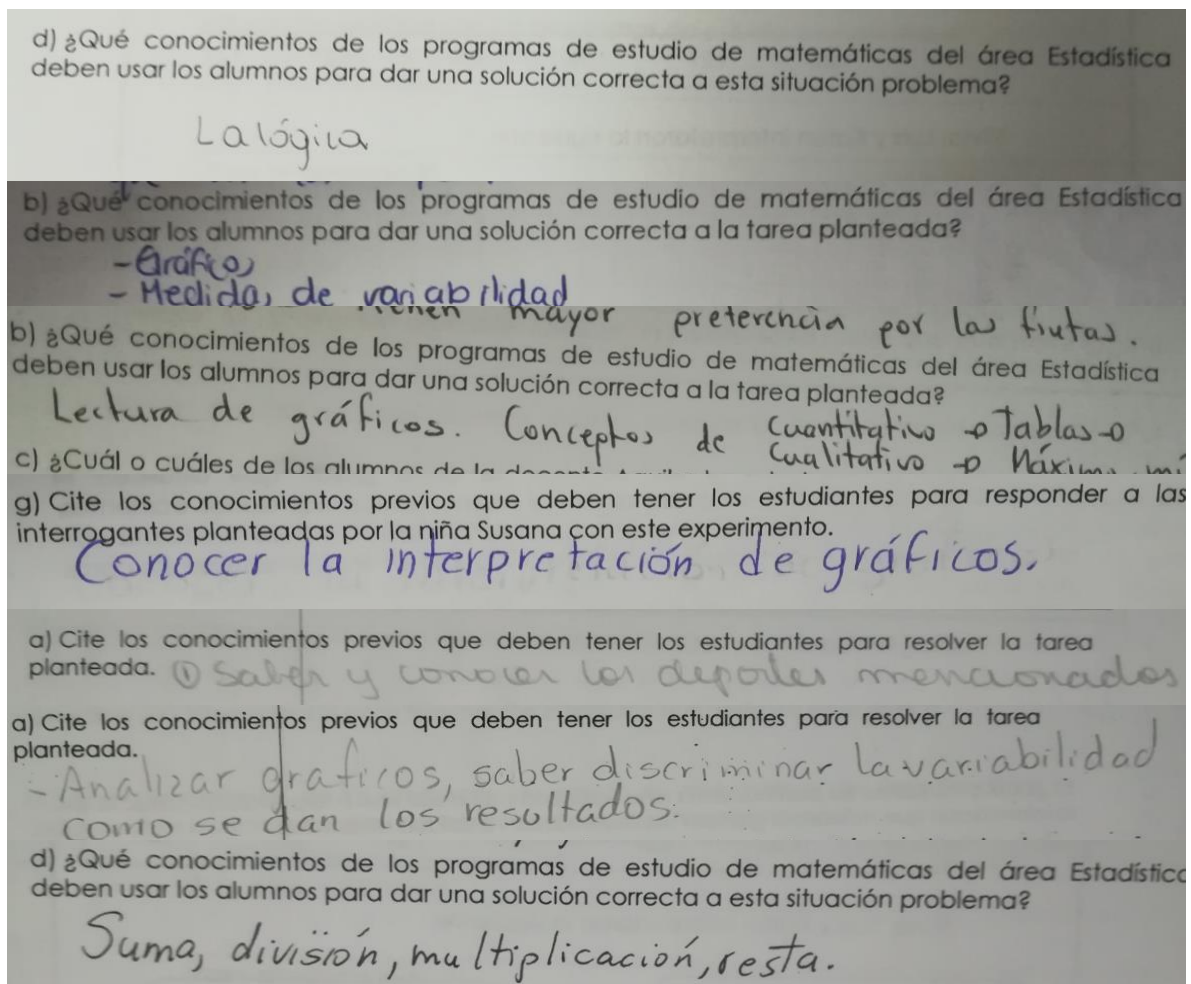 d) ¿Qué conocimientos de los programas de estudio de matemáticas del área Estadística
deben usar los alumnos para dar una solución correcta a esta situación problema?
La lógica
b) ¿Qué conocimientos de los programas de estudio de matemáticas del área Estadística
deben usar los alumnos para dar una solución correcta a la tarea planteada?
- Gráficos
- Medidas de variabilidad
tienen mayor preferencia por las frutas.
b) ¿Qué conocimientos de los programas de estudio de matemáticas del área Estadística
deben usar los alumnos para dar una solución correcta a la tarea planteada?
Lectura de gráficos. Conceptos de cuantitativo → Tablas →
cualitativo → Máximo
c) ¿Cuál o cuáles de los alumnos de la docente
g) Cite los conocimientos previos que deben tener los estudiantes para responder a las
interrogantes planteadas por la niña Susana con este experimento.
Conocer la interpretación de gráficos.
a) Cite los conocimientos previos que deben tener los estudiantes para resolver la tarea
planteada. ① Saber y conocer los deportes mencionados
a) Cite los conocimientos previos que deben tener los estudiantes para resolver la tarea
planteada.
- Analizar graficos, saber discriminar la variabilidad
como se dan los resultados.
d) ¿Qué conocimientos de los programas de estudio de matemáticas del área Estadística
deben usar los alumnos para dar una solución correcta a esta situación problema?
Suma, división, multiplicación, resta.